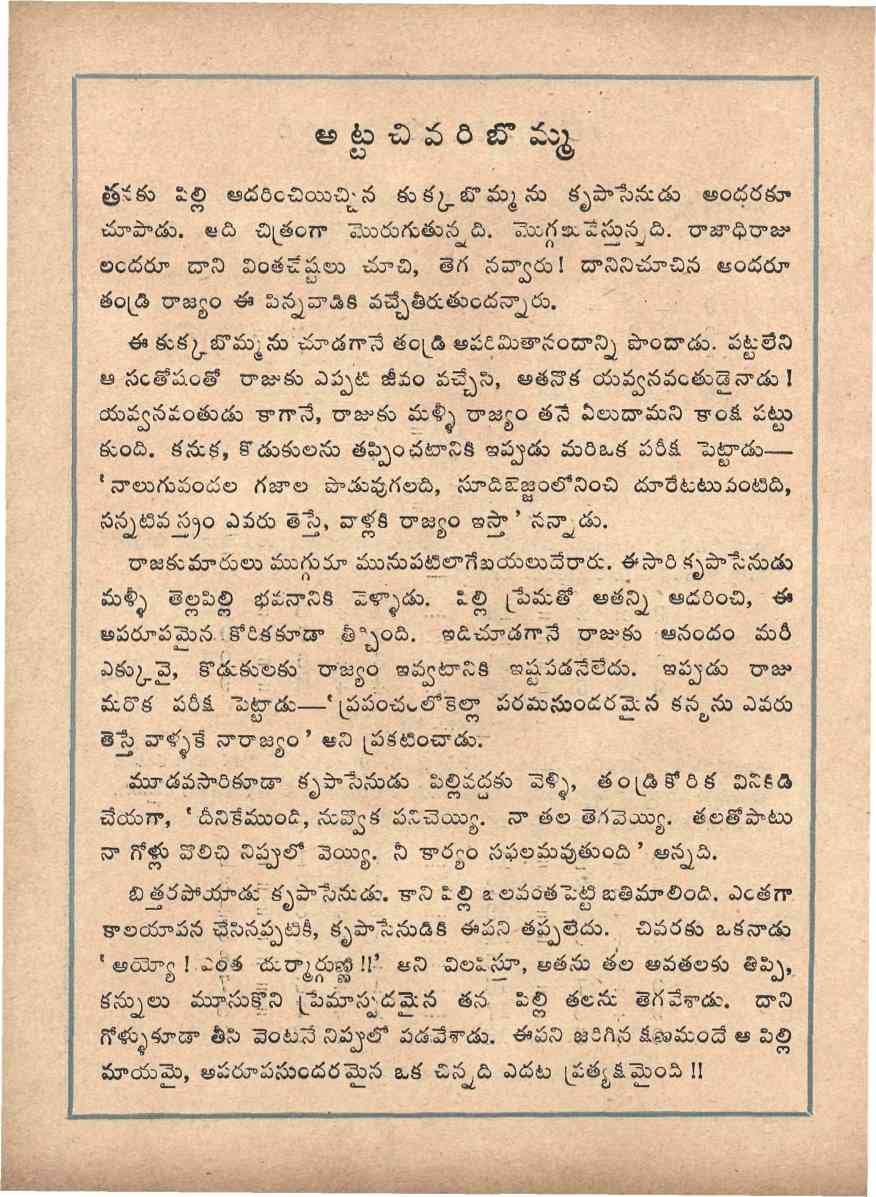 అట్ట చివరి బొమ్మ
తనకు పిల్లి ఆదరించియిచ్చిన కుక్క బొమ్మను కృపాసేనుడు అందరకూ
చూపాడు. అది చిత్రంగా మొరుగుతున్నది. మొగ్గలువేస్తున్నది. రాజాధిరాజు
లందరూ దాని వింతచేష్టలు చూచి, తెగ నవ్వారు! దానినిచూచిన అందరూ
తండ్రి రాజ్యం ఈ పిన్నవాడికి వచ్చేతీరుతుందన్నారు.
ఈ కుక్క బొమ్మను చూడగానే తండ్రి అపరిమితానందాన్ని పొందాడు. పట్టలేని
ఆ సంతోషంతో రాజుకు ఎప్పటి జీవం వచ్చేసి, అతనొక యవ్వనవంతుడైనాడు!
యవ్వనవంతుడు కాగానే, రాజుకు మళ్ళీ రాజ్యం తనే ఏలుదామని కాంక్ష పట్టు
కుంది. కనుక, కొడుకులను తప్పించటానికి ఇప్పుడు మరిఒక పరీక్ష పెట్టాడు—
‘నాలుగువందల గజాల పొడువుగలది, సూదిబెజ్జంలోనించి దూరేటటువంటిది,
సన్నటివస్త్రం ఎవరు తెస్తే, వాళ్లకి రాజ్యం ఇస్తా’ నన్నాడు.
రాజకుమారులు ముగ్గురూ మునుపటిలాగేబయలుదేరారు. ఈసారి కృపాసేనుడు
మళ్ళీ తెల్లపిల్లి భవనానికి వెళ్ళాడు. పిల్లి ప్రేమతో అతన్ని ఆదరించి, ఈ
అపరూపమైన కోరికకూడా తీర్చింది. ఇదిచూడగానే రాజుకు ఆనందం మరీ
ఎక్కువై, కొడుకులకు రాజ్యం ఇవ్వటానికి ఇష్టపడనేలేదు. ఇప్పుడు రాజు
మరొక పరీక్ష పెట్టాడు—‘ప్రపంచంలోకెల్లా పరమసుందరమైన కన్యను ఎవరు
తెస్తే వాళ్ళకే నారాజ్యం’ అని ప్రకటించాడు.
మూడవసారికూడా కృపాసేనుడు పిల్లివద్దకు వెళ్ళి, తండ్రికోరిక వినికిడి
చేయగా, ‘దీనికేముంది, నువ్వొక పనిచెయ్యి. నా తల తెగవెయ్యి. తలతోపాటు
నా గోళ్లు వొలిచి నిప్పులో వెయ్యి. నీ కార్యం సఫలమవుతుంది’ అన్నది.
బిత్తరపోయాడు కృపాసేనుడు. కాని పిల్లి బలవంతపెట్టి బతిమాలింది. ఎంతగా
కాలయాపన చేసినప్పటికీ, కృపాసేనుడికి ఈపని తప్పలేదు. చివరకు ఒకనాడు
‘అయ్యో! ఎంత దుర్మార్గుణ్ణి!!’ అని విలపిస్తూ, అతను తల అవతలకు తిప్పి,
కన్నులు మూసుకొని ప్రేమాస్పదమైన తన పిల్లి తలను తెగవేశాడు. దాని
గోళ్ళుకూడా తీసి వెంటనే నిప్పులో పడవేశాడు. ఈపని జరిగిన క్షణమందే ఆ పిల్లి
మాయమై, అపరూపసుందరమైన ఒక చిన్నది ఎదట ప్రత్యక్షమైంది!!